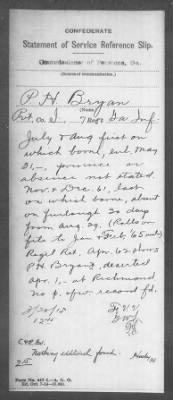 CONFEDERATE
Statement of Service Reference Slip.
Commissioner of Pensions, Ga.
P. H. Bryan
(Name.)
Pvt. Co. I. 7 Regt Ga Inf.
July & Aug first on
which borne, enl. May
31,-, presence or
absence not stated.
Nov. & Dec. 61, last
on which borne, absent
on furlough 30 days
from Aug. 29. (Rolls on
file to Jan & Feb. '65
Regtl Ret. Apr. 62 shows
P. H. Bryant, deserted
Apr. 1,- at Richmond
no p. of w. record fd.
Nothing additional found.
Form No. 467-1—A. G. O.